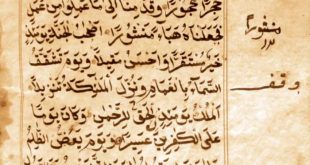 حِجْرًا مَحْجُورًا وَقَدِمْنَا اِلٰى مَا عَمِلُوا مِنْ عَمَلٍ
فَجَعَلْنَاهُ هَبَاءً مَنْثُورًا اَصْحَابُ الْجَنَّةِ يَوْمَئِذٍ
خَيْرٌ مُسْتَقَرًّا وَاَحْسَنُ مَقِيلًا وَيَوْمَ تَشَقَّقُ
السَّمَاءُ بِالْغَمَامِ وَنُزِّلَ الْمَلٰئِكَةُ تَنْزِيلًا
اَلْمُلْكُ يَوْمَئِذٍ الْحَقُّ لِلرَّحْمٰنِ وَكَانَ يَوْمًا
عَلَى الْكٰفِرِينَ عَسِيرًا وَيَوْمَ يَعَضُّ الظَّلِمُ
منثورًا
وقف